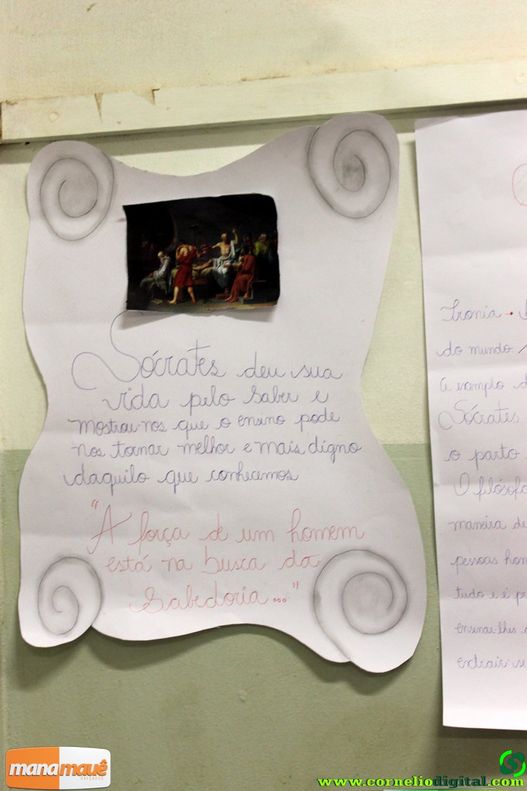 Sócrates deu sua
vida pelo saber e
mostrou-nos que o ensino pode
nos tornar melhor e mais digno
daquilo que conhecemos
"A força de um homem
está na busca da
Sabedoria..."
Ironia
do mundo
Sócrates
o parto
O filósofo
maneira de
pessoas
tudo e é
ensinar-lhes
extrair
manamauê
www.corneliodigital.com